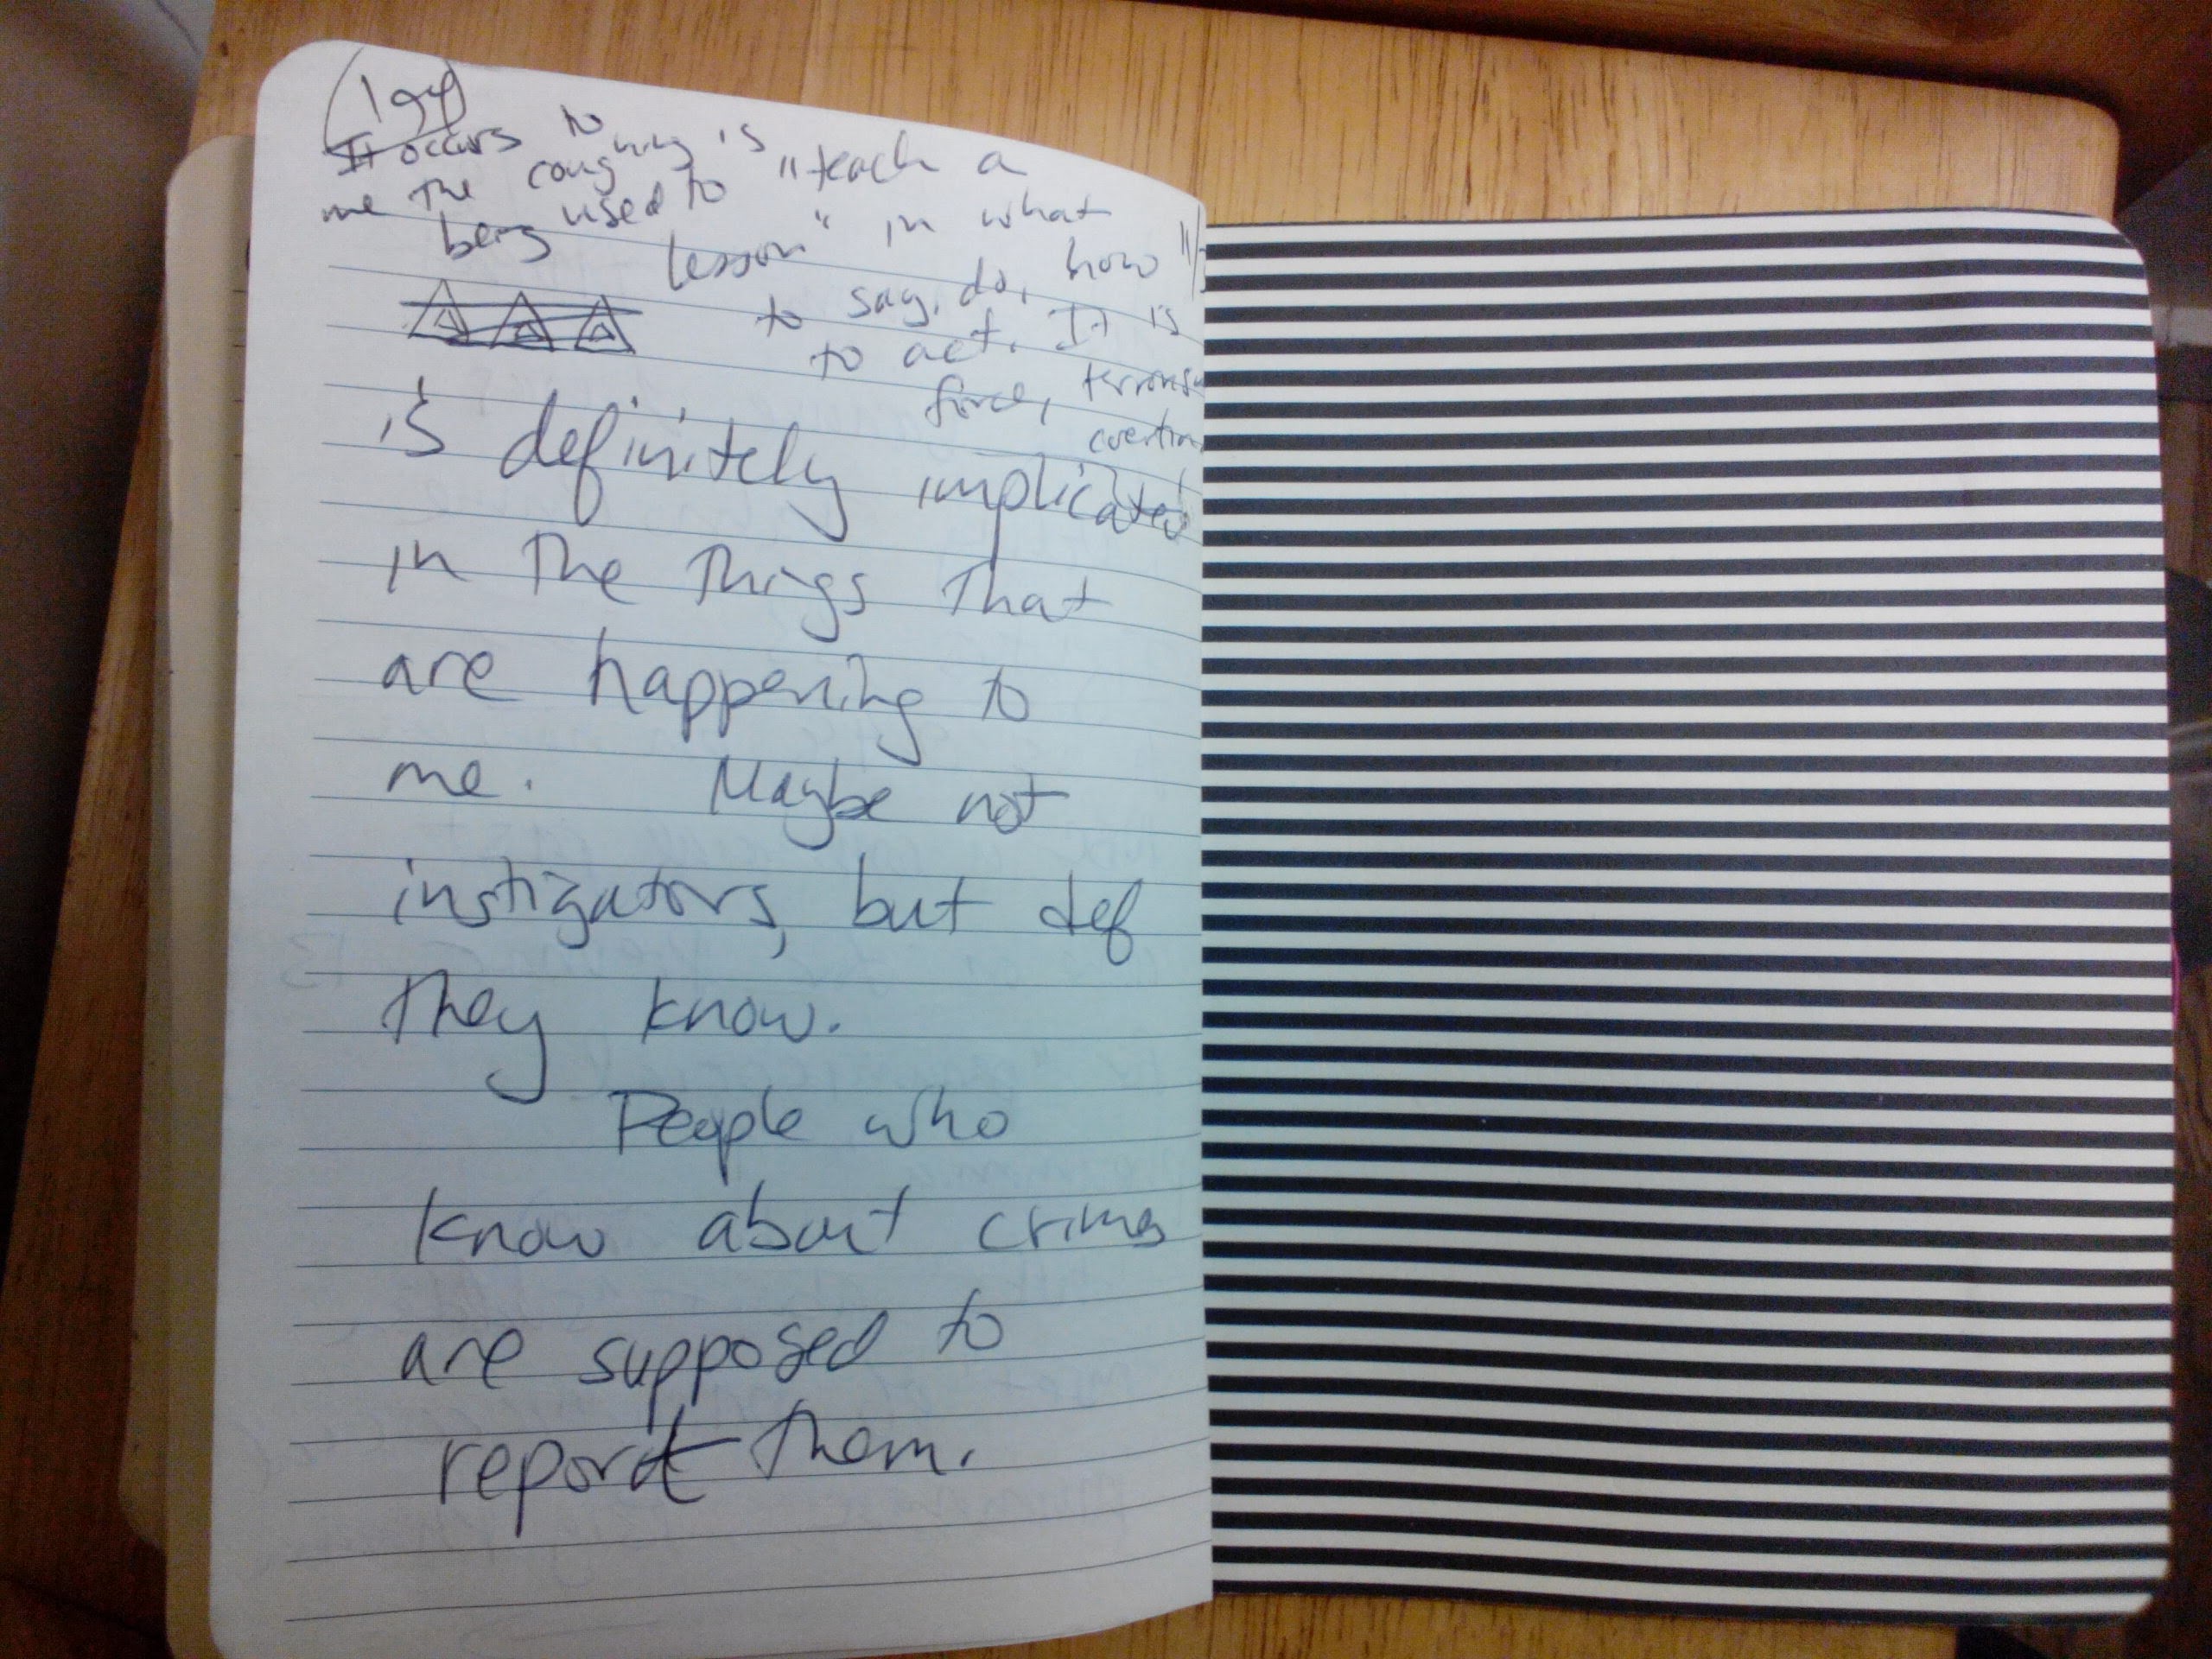 It occurs to
me the coughing is
being used to "teach a
lesson" in what
to say, do, how
to act. It is
force,
is definitely implicated
in the things that
are happening to
me. Maybe not
instigators, but def
they know.
People who
know about crimes
are supposed to
report them.